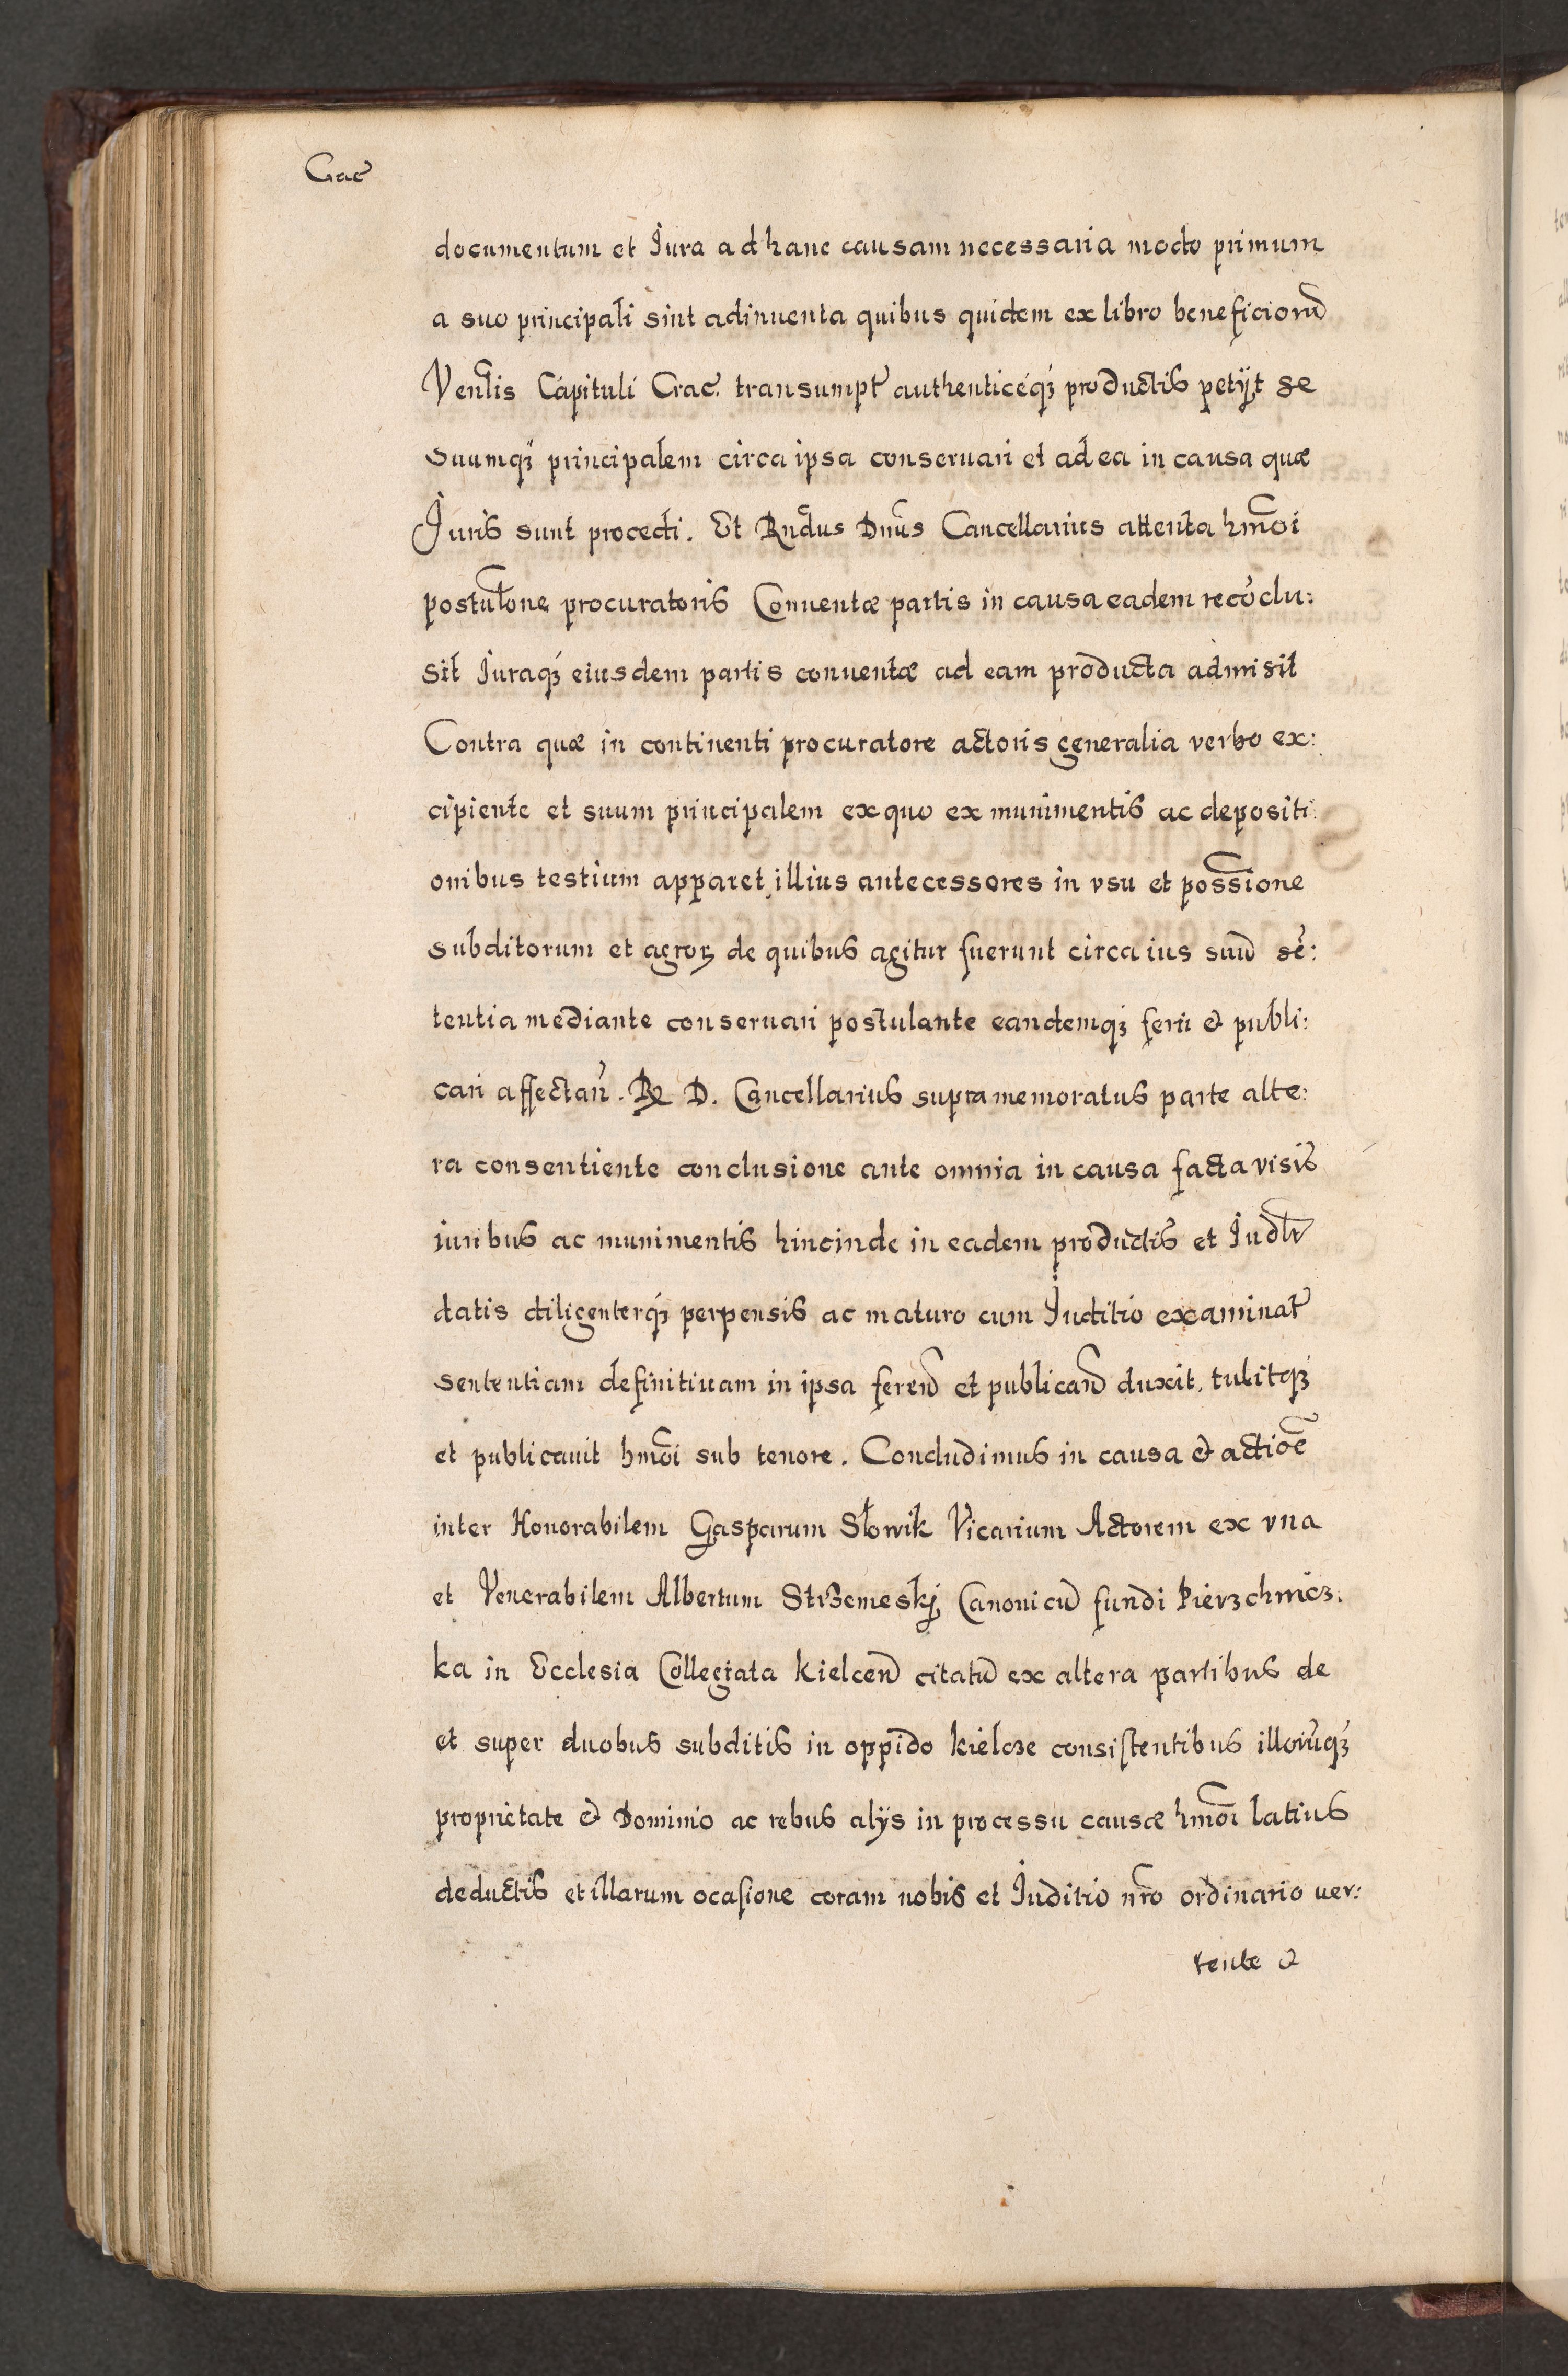 Crac̃
documentum et Jura ad hanc causam necessaria modo primum
a suo principali sint adinuenta quibus quidem ex libro beneficiorũ
Venlĩs Capituli Crac̃. transumpt̃ authenticéq́ꝫ productis petijt se
suumqꝫ principalem circa ipsa conseruari et ad ea in causa quæ
Juris sunt procedi. Et Rñdus Dnũs Cancellarius attenta hmõi
postulõne procuratoris Conuentæ partis in causa eadem recõclu:
sit Juraq́ꝫ eiusdem partis conuentæ ad eam producta admisit
Contra quæ in continenti procuratore actoris generalia verbo ex:
cipiente et suum principalem ex quo ex munimentis ac depositi:
onibus testium apparet illius antecessores in vsu et possĩone
subditorum et agroꝝ de quibus agitur fuerunt circa ius suũ sẽ:
tentia mediante conseruari postulante eandemqꝫ ferri & publi:
cari affectañ. R. D. Cancellarius supra memoratus parte alte:
ra consentiente conclusione ante omnia in causa facta visis
iuribus ac munimentis hincinde in eadem productis et Judlr̃
datis diligenterq́ꝫ perpensis ac maturo cum Juditio examinat̃
sententiam definitiuam in ipsa fereñ et publicañ duxit, tulitq́ꝫ
et publicauit hmõi sub tenore. Concludimus in causa & actiõe
inter Honorabilem Gasparum Słowik Vicarium Actorem ex vna
et Venerabilem Albertum Strzemeskj Canonicũ fundi Pierzchnicz:
ka in Ecclesia Collegiata Kielceñ citatũ ex altera partibus de
et super duobus subditis in oppido Kielcze consistentibus illorũq́ꝫ
proprietate & Dominio ac rebus alijs in processu causæ hmõi latius
deductis et illarum ocasione coram nobis et Juditio nr̃o ordinario uer:
tente &